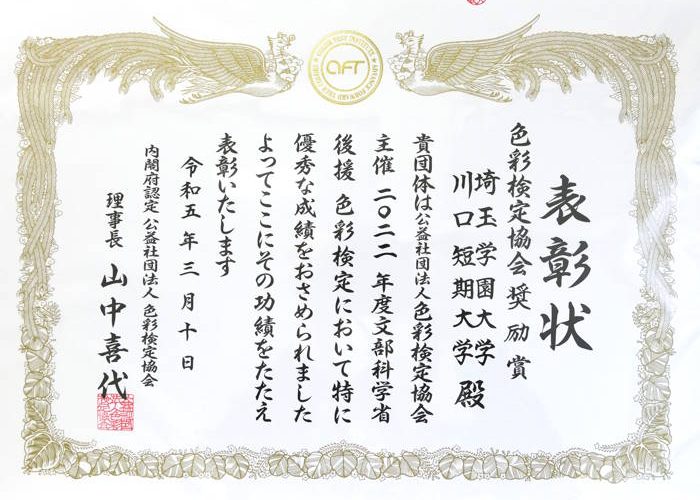 AFT
表彰状
色彩検定協会奨励賞
埼玉学園大学
川口短期大学 殿
貴団体は公益社団法人色彩検定協会
主催 二〇二二 年度文部科学省
後援 色彩検定において特に
優秀な成績をおさめられました
よってここにその功績をたたえ
表彰いたします
令和五年三月十日
内閣府認定 公益社団法人 色彩検定協会
理事長 山中喜代